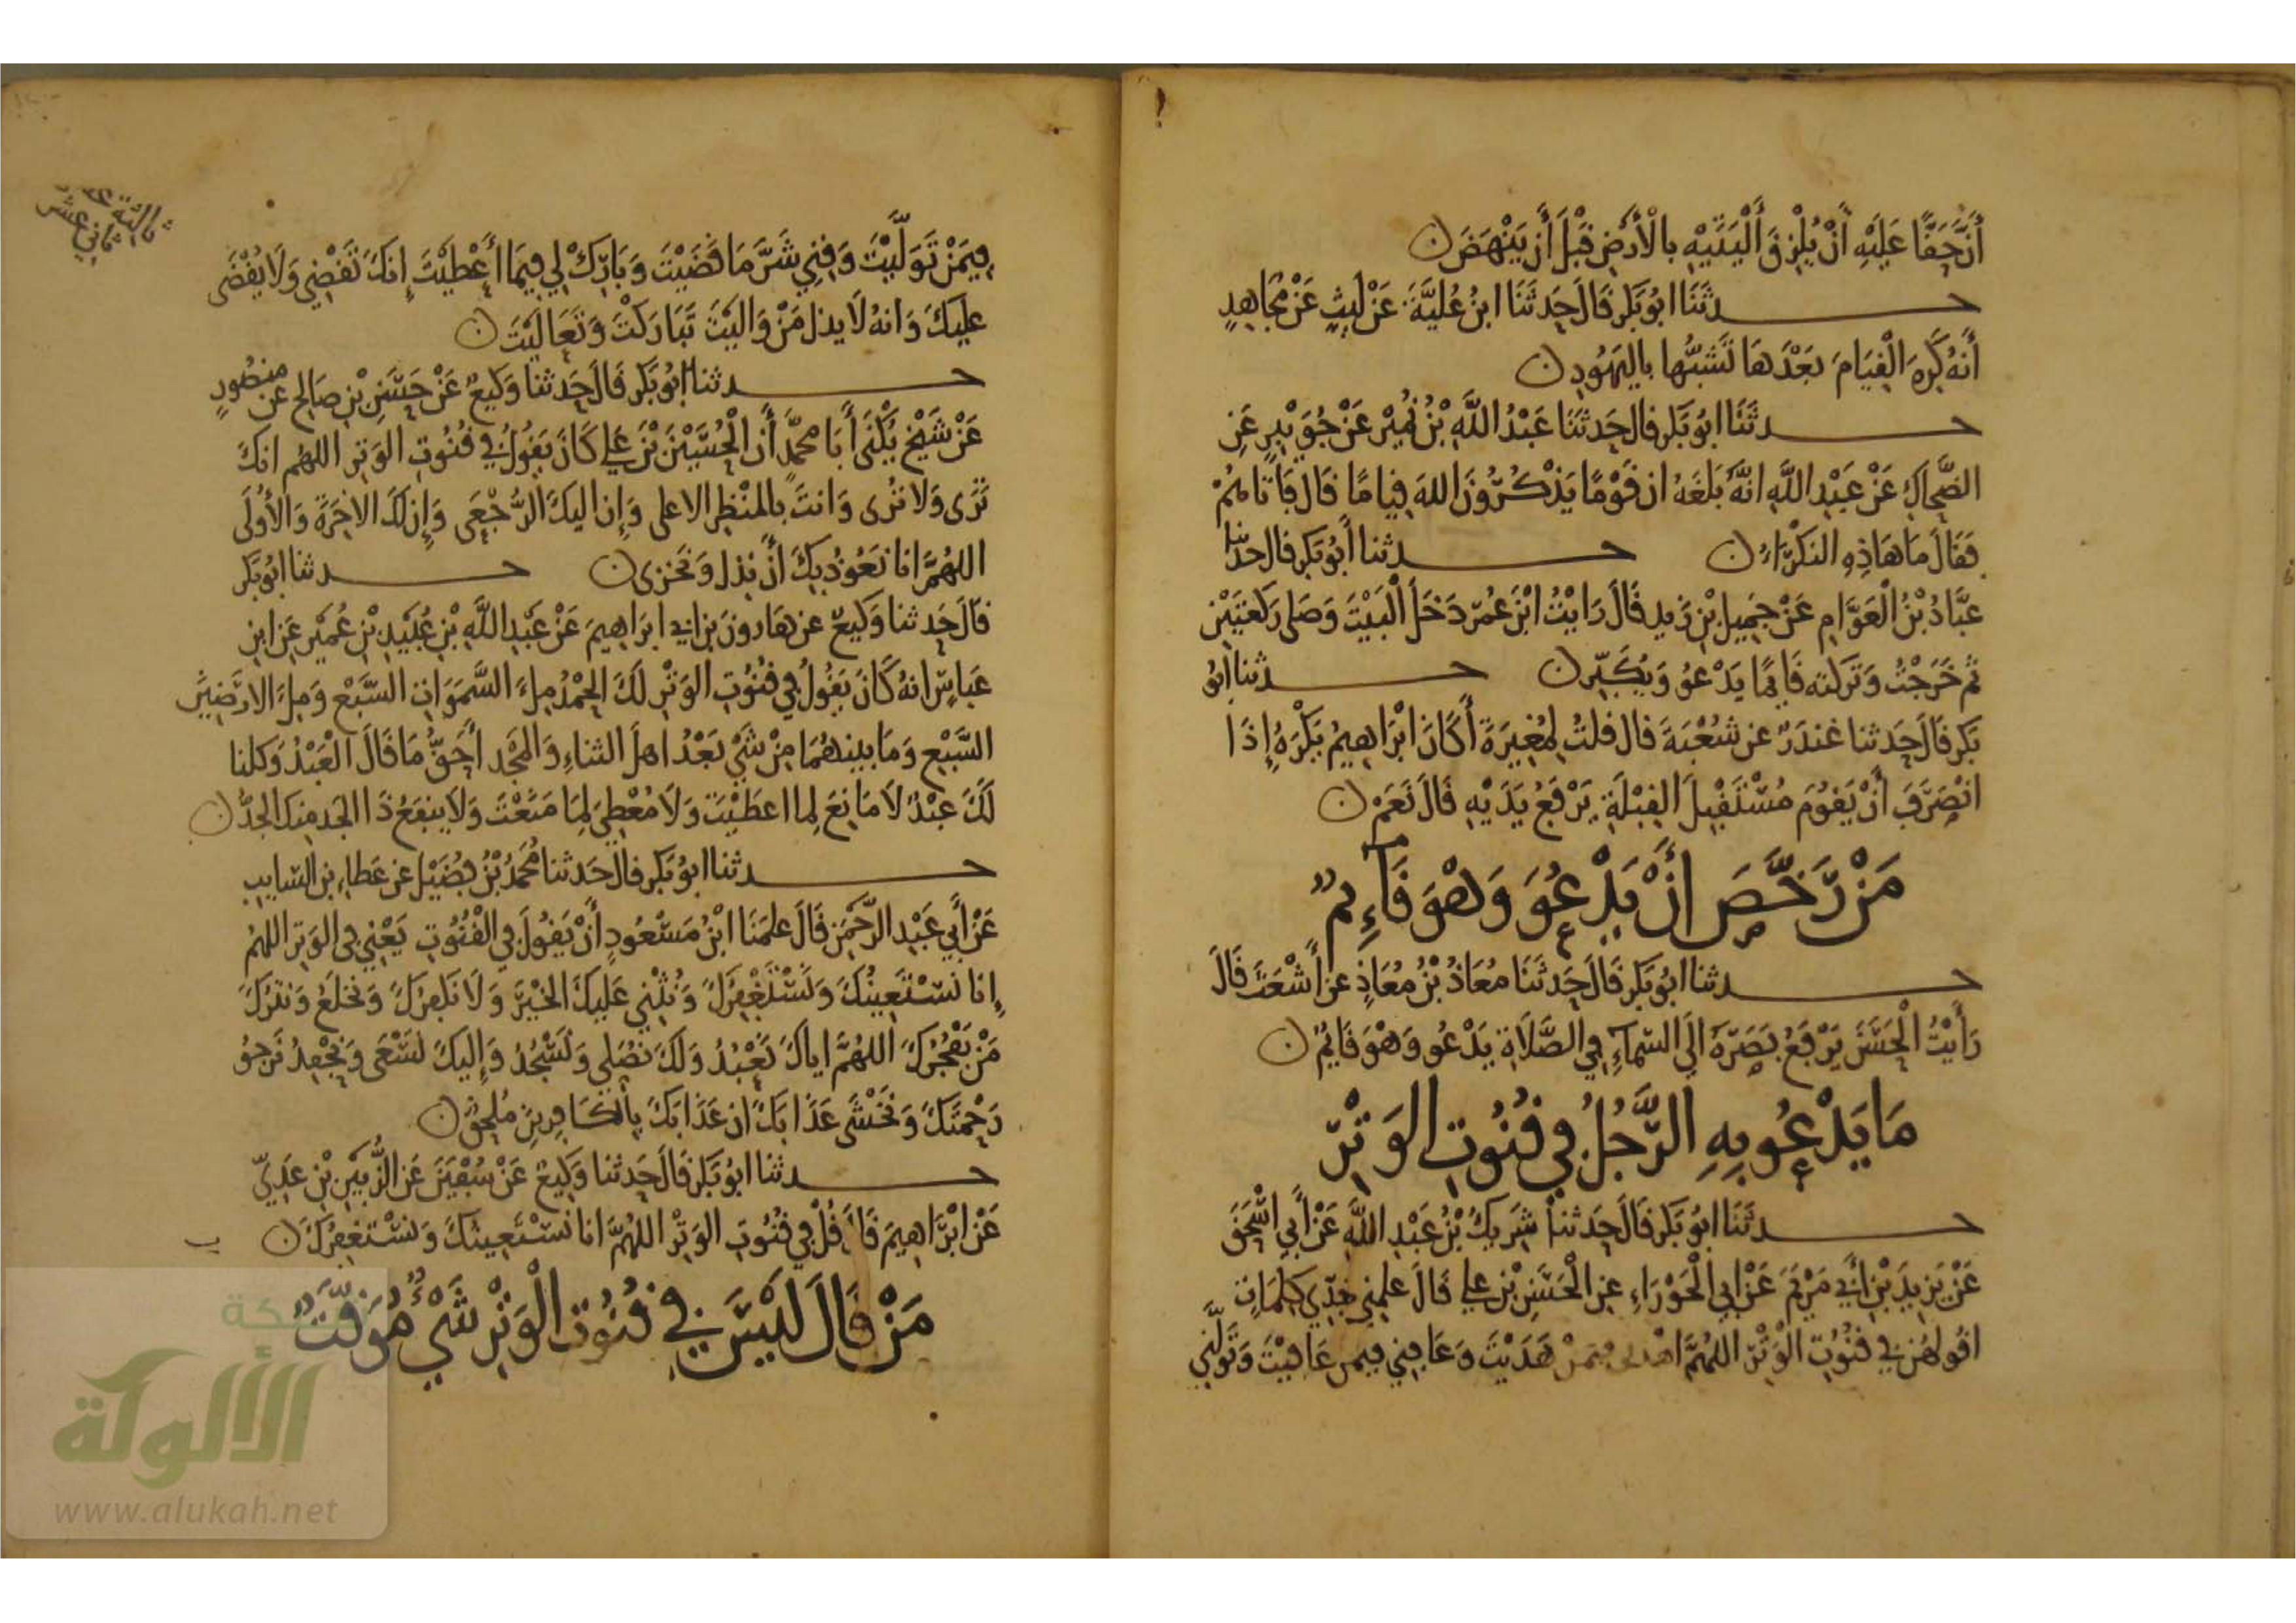 أَنَّ حَقًّا عَلَيْهِ أَنْ يُلْزِقَ أَلْيَتَيْهِ بالْأَرْضِ قَبْلَ أَنْ يَنْهَضَ ن
حـــدثَنَا ابُو بَكرٍ قَالَ حَدثَنَا ابنُ عُلَيَّةَ عَنْ لَيثٍ عَنْ مُجَاهِدٍ
أَنهُ كَرِهَ الْقِيَامَ بَعْدَهَا تَشَبُّها باليَهُودِ ن
حـــدثَنَا ابُو بَكرٍ قال حَدثَنَا عَبْدُ اللَّهِ بْنُ نُمَيْرٍ عَنْ جُوَيْبِرٍ عَنِ
الضَّحاكِ عَنْ عَبْدِ اللَّهِ انَّهُ بَلَغَهُ ان قَوْمًا يَذْكُرُونَ اللهَ قِيامًا قَالَ فَأَتَاهُمْ
فَقَالَ مَا هَاذِهِ النَكْرَاءُ ن حـــدثنا أَبُو بَكرٍ قال حدثنا
عَبَّادُ بْنُ الْعَوَّامِ عَنْ جَمِيلِ بْنِ زَيدٍ قَالَ رَايْتُ ابْنَ عُمَرَ دَخَلَ الْبَيْتَ وَصَلى رَكعَتَيْنِ
ثم خَرَجْتُ وَتَرَكته قَائِمًا يَدْعُو وَيُكَبِّر ن حـــدثنا ابُو
بَكرٍ قَالَ حَدثنا غندَرٌ عن شُعْبَةَ قال قلتُ لِمُغِيرَةَ أَكَانَ ابْرَاهِيمُ يَكْرَهُ إِذَا
انْصَرَفَ أَنْ يَقُومَ مُسْتَقْبِلَ القِبْلَةِ يَرْفَعُ يَدَيْهِ قَالَ نَعَمْ ن
مَنْ رَخَّصَ أَنْ يَدْعُوَ وَهْوَ قَاءِمٌ
حـــدثنا ابُو بَكرٍ قَالَ حَدثَنَا مُعَاذُ بْنُ مُعَاذٍ عن أَشْعَثَ قَالَ
رَأَيْتُ الْحَسَنَ يَرْفَعُ بَصَرَهُ الَى السَّمَاءِ فِي الصَّلَاةِ يَدْعُو وَهْوَ قَائِمٌ ن
مَا يَدْعُو بِهِ الرَّجُلُ فِي قُنُوتِ الوَتْرِ
حـــدثَنَا ابُو بَكرٍ قَالَ حَدثنا شَرِيكُ بْنُ عَبْدِ اللَّهِ عَنْ أَبِي اسْحَقَ
عَنْ يَزِيدَ بْنِ أَبِي مَرْيَمَ عَنْ ابِي الْحَوْرَاءِ عن الْحَسَنِ بْنِ عَلِي قَالَ عَلمنِي جَدِّي كَلِمَاتٍ
اقُولهُن في قنُوتِ الْوَتْرِ اللهُمَّ اهْدنِي فِيمَنْ هَدَيْتَ وَعَافِنِي فيمن عَافيْتَ وَتَوَلَّنِي
ثالثة
ثاني عشر
فِيمَنْ تَوَلَّيْتَ وَقِنِي شَرَّ مَا قَضَيْتَ وَبَارِكْ لِي فِيمَا أَعْطَيْتَ إِنكَ تَقْضِي وَلَا يُقْضَى
عليكَ وَانهُ لَا يذل مَنْ وَاليْتَ تَبَارَكْتَ وَتَعَالَيْتَ ن
حـــدثنا ابُو بَكرٍ قَالَ حَدثنا وَكِيعٌ عَنْ حَسَنِ بْنِ صَالِحٍ عَن منصُورٍ
عَنْ شَيْخٍ يُكْنَى أَبَا محمَّدٍ أَنَّ الْحُسَيْنَ بْنَ عَلِي كَانَ يَقُولُ فِي قُنُوتِ الوَتر اللهُم انكَ
تَرَى وَلا تُرى وَانتَ بالمَنْظر الاعلى وَإِن اليكَ الرُّجْعَى وَإِن لَكَ الاخِرَةَ وَالأُولَى
اللهُمَّ انا نَعُوذُ بِكَ أَنْ نذل وَنَخزى ن حـــدثنا ابُو بَكر
قالَ حَدثنا وَكِيعٌ عن هَارونَ بن ابي ابرَاهِيمَ عَنْ عَبْدِ اللَّهِ بْنِ عُبَيْدِ بْنِ عُمَيْرٍ عَن ابنِ
عَباسٍ انهُ كَانَ يَقُولُ فِي قنُوتِ الوَتْرِ لكَ الحَمْدُ مِلءَ السَّمَوَاتِ السَّبْعِ وَمِلءَ الارَضِينَ
السَّبْعِ وَمَا بينهُمَا مِنْ شَيْءٍ بَعْدُ اهلَ الثناءِ وَالمَجْدِ أَحَقُّ مَا قَالَ الْعَبْدُ وَكلنا
لَكَ عَبْدٌ لَا مَانِعَ لِما اعطَيْتَ وَلَا مُعْطِيَ لِمَا مَنَعْتَ وَلَا ينفَعُ ذَا الجَد منكَ الجَدُّ ن
حـــدثنا ابُو بَكرٍ قالَ حَدثنا مُحَمَّدُ بْنُ فُضَيْلٍ عن عَطاءِ بن السَّايبِ
عَنْ أَبِي عَبْدِ الرَّحْمَنِ قَالَ علمَنَا ابْنُ مَسْعُودٍ أَنْ يَقُولَ فِي الْقُنُوتِ يَعْنِي في الوَتِر اللهُم
إِنا نَسْتَعِينُكَ وَنَسْتَغْفِرُكَ وَنُثْنِي عَلَيكَ الخَيْرَ وَلَا نكفرُكَ وَنَخلَعُ وَنَتركُ
مَنْ يَفْجُرُكَ اللهُمَّ اياكَ نَعْبُدُ وَلَكَ نُصَلِي وَنَسْجُدُ وَإِليكَ نَسْعَى وَنَحْفِدُ نَرجُو
رَحْمَتَكَ وَنَخْشَى عَذَابَكَ ان عَذَابَكَ بِالكَافِرِينَ مُلحِقٌ ن
حـــدثنا ابُو بَكرٍ قَالَ حَدثنا وَكِيعٌ عَنْ سُفْيَنَ عَن الزُّبَيْرِ بْنِ عَدِيٍّ
عَنْ ابْرَاهِيمَ قَالَ قُلْ فِي قُنُوتِ الوَتْرِ اللهُمَّ انا نَسْتَعِينُكَ وَنَسْتَغفِرُكَ ن
مَنْ قَالَ لَيْسَ فِي قُنُوتِ الْوَتْرِ شَيْءٌ مُوَقَّتٌ
شبكة
الألوكة
www.alukah.net